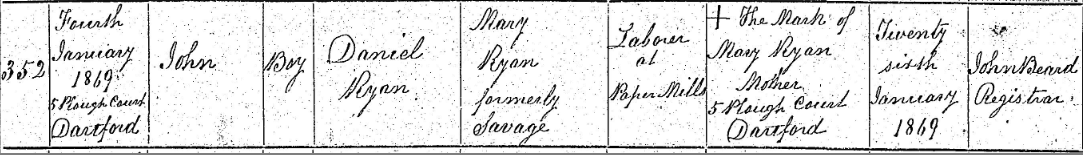 352
Fourth
January
1869
5 Plough Court
Dartford
John
Boy
Daniel
Ryan
Mary
Ryan
formerly
Savage
Laborer
at
Paper Mills
+ The Mark of
Mary Ryan
Mother
5 Plough Court
Dartford
Twenty
sixth
January
1869
John Beard
Registrar.